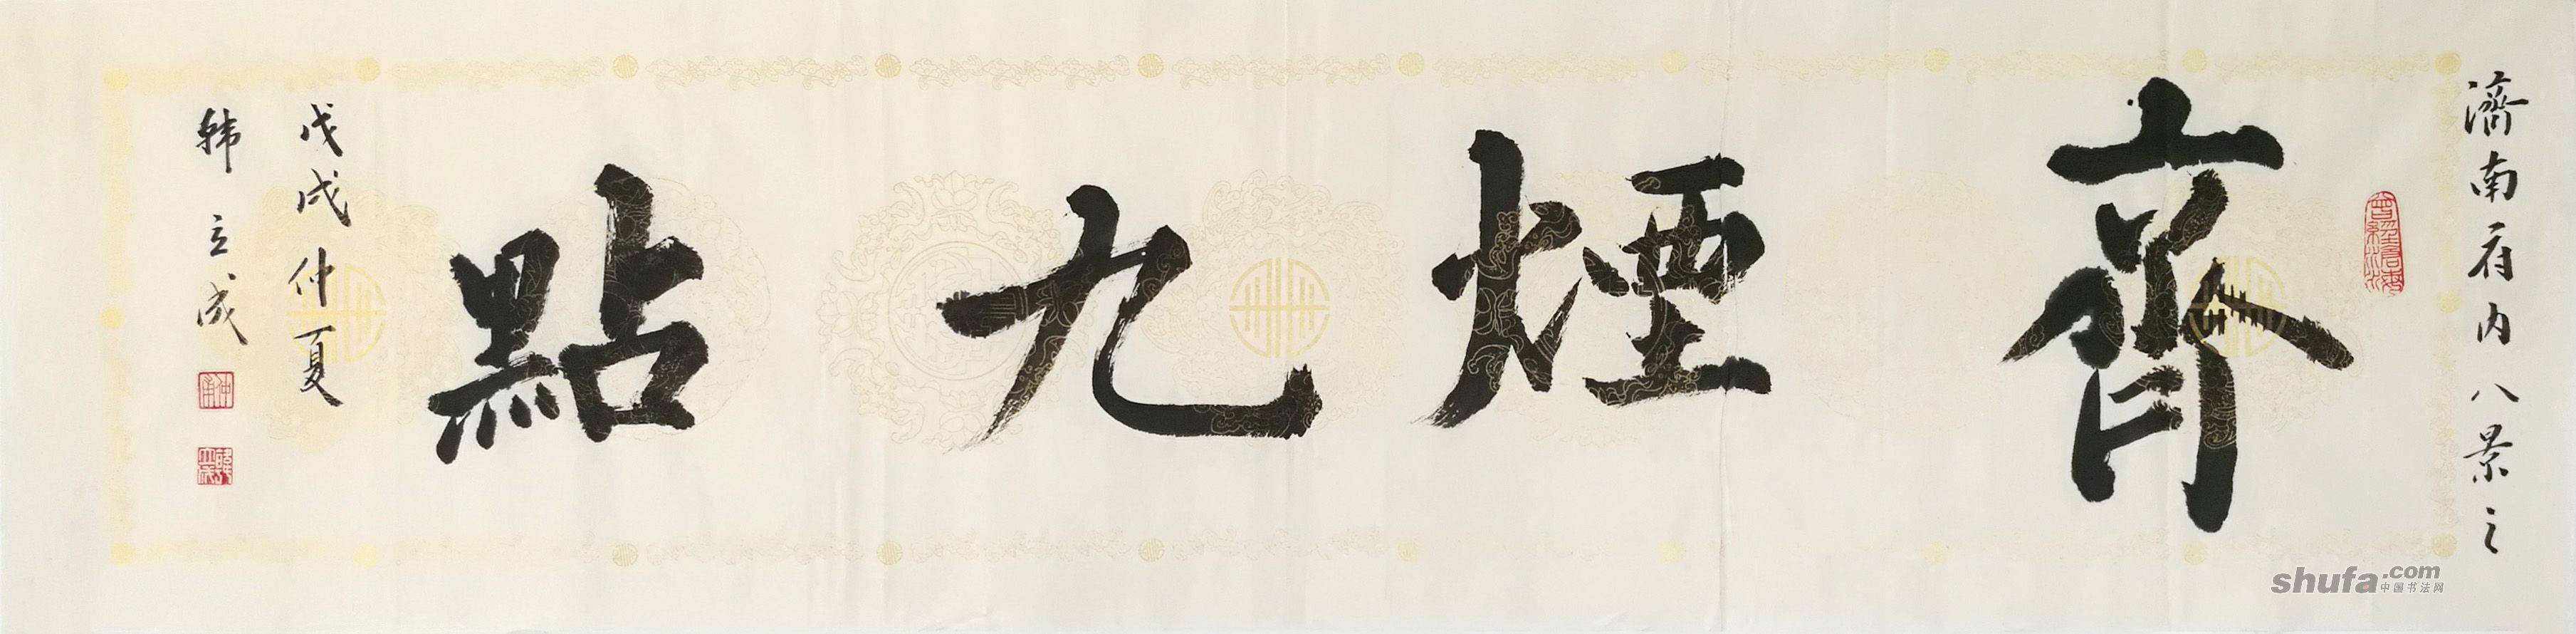 濟南府内八景之
齊煙九點
戊戌仲夏
韩立成
shufa.com
中国书法网